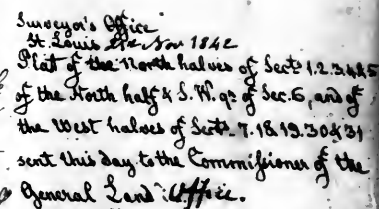 Surveyor's Office
St. Louis 21st Nov 1842
Plat of the North halves of Sects 1.2.3.4&5
of the North half & S.W. qr of Sec. 6, and of
the West halves of Sects. 7.18.19.30&31
sent this day to the Commissioner of the
General Land Office.